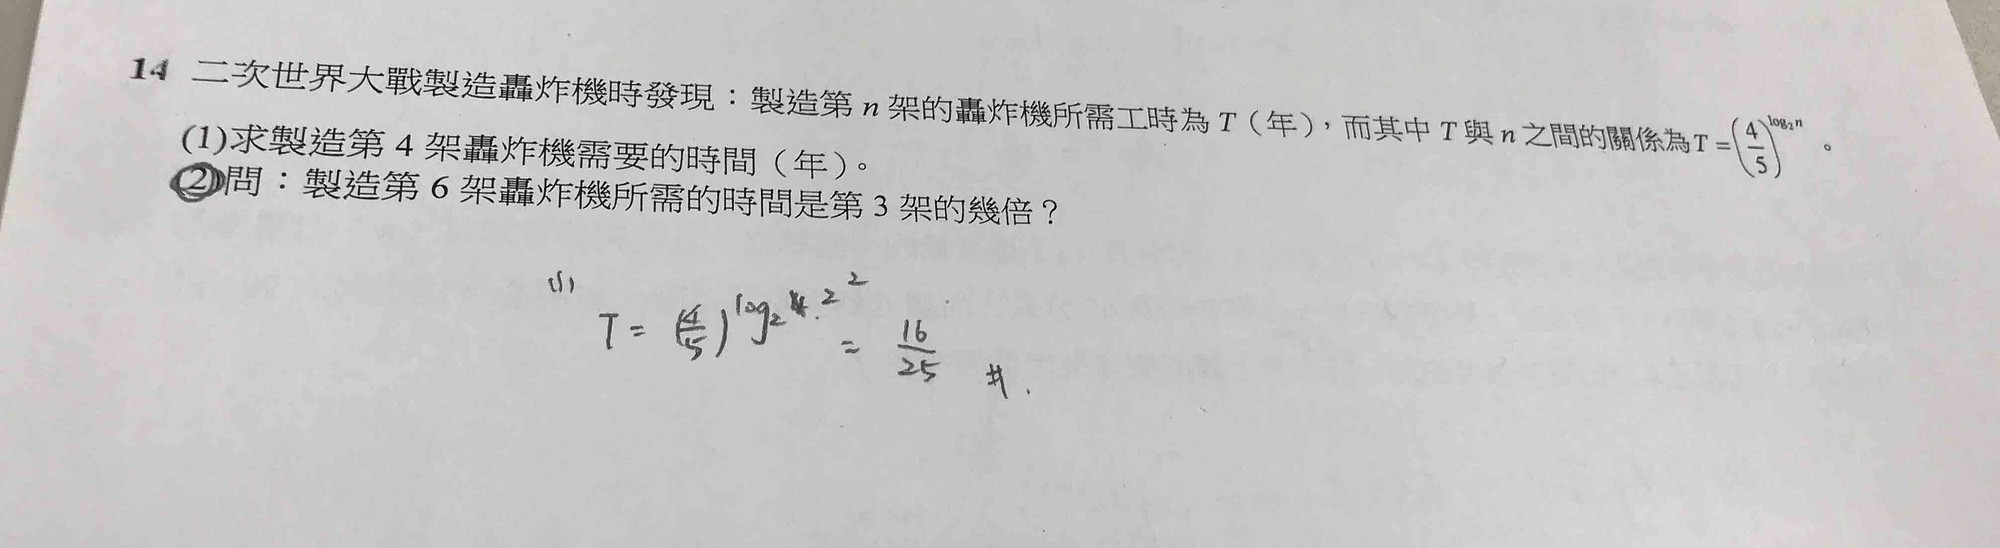 14 二次世界大戰製造轟炸機時發現：製造第 n 架的轟炸機所需工時為 T（年），而其中 T 與 n 之間的關係為 T = (4/5)^{log₂n}。
(1)求製造第 4 架轟炸機需要的時間（年）。
(2)問：製造第 6 架轟炸機所需的時間是第 3 架的幾倍？
(1)
T = (4/5)^{log₂ 2²} = 16/25 #.